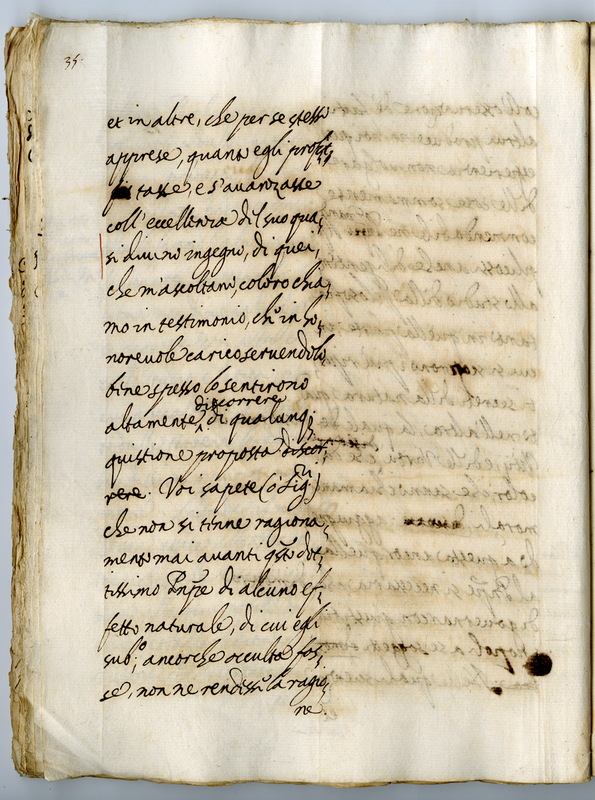 35.
et in altre, che per se stesso
apprese, quanto egli profit,
tasse, e s'avanzasse
coll'eccellenza del suo qua,
si divino ingegno, di quei,
che m'ascoltano, coloro chia,
mo in testimonio, ch'in ho,
norevole carico servendolo
bene spesso lo sentirono
discorrere
altamente ^ di qualunq;
quistione proposta discor,
rere. Voi sapete (ò Sig.ri)
che non si tenne ragiona,
mento mai avanti q.sto dot,
tissimo Pn̄pe di alcuno ef,
fetto naturale, di cui egli
sub.o, ancorche occulta fos,
se, non ne rendesse la ragio,
ne.